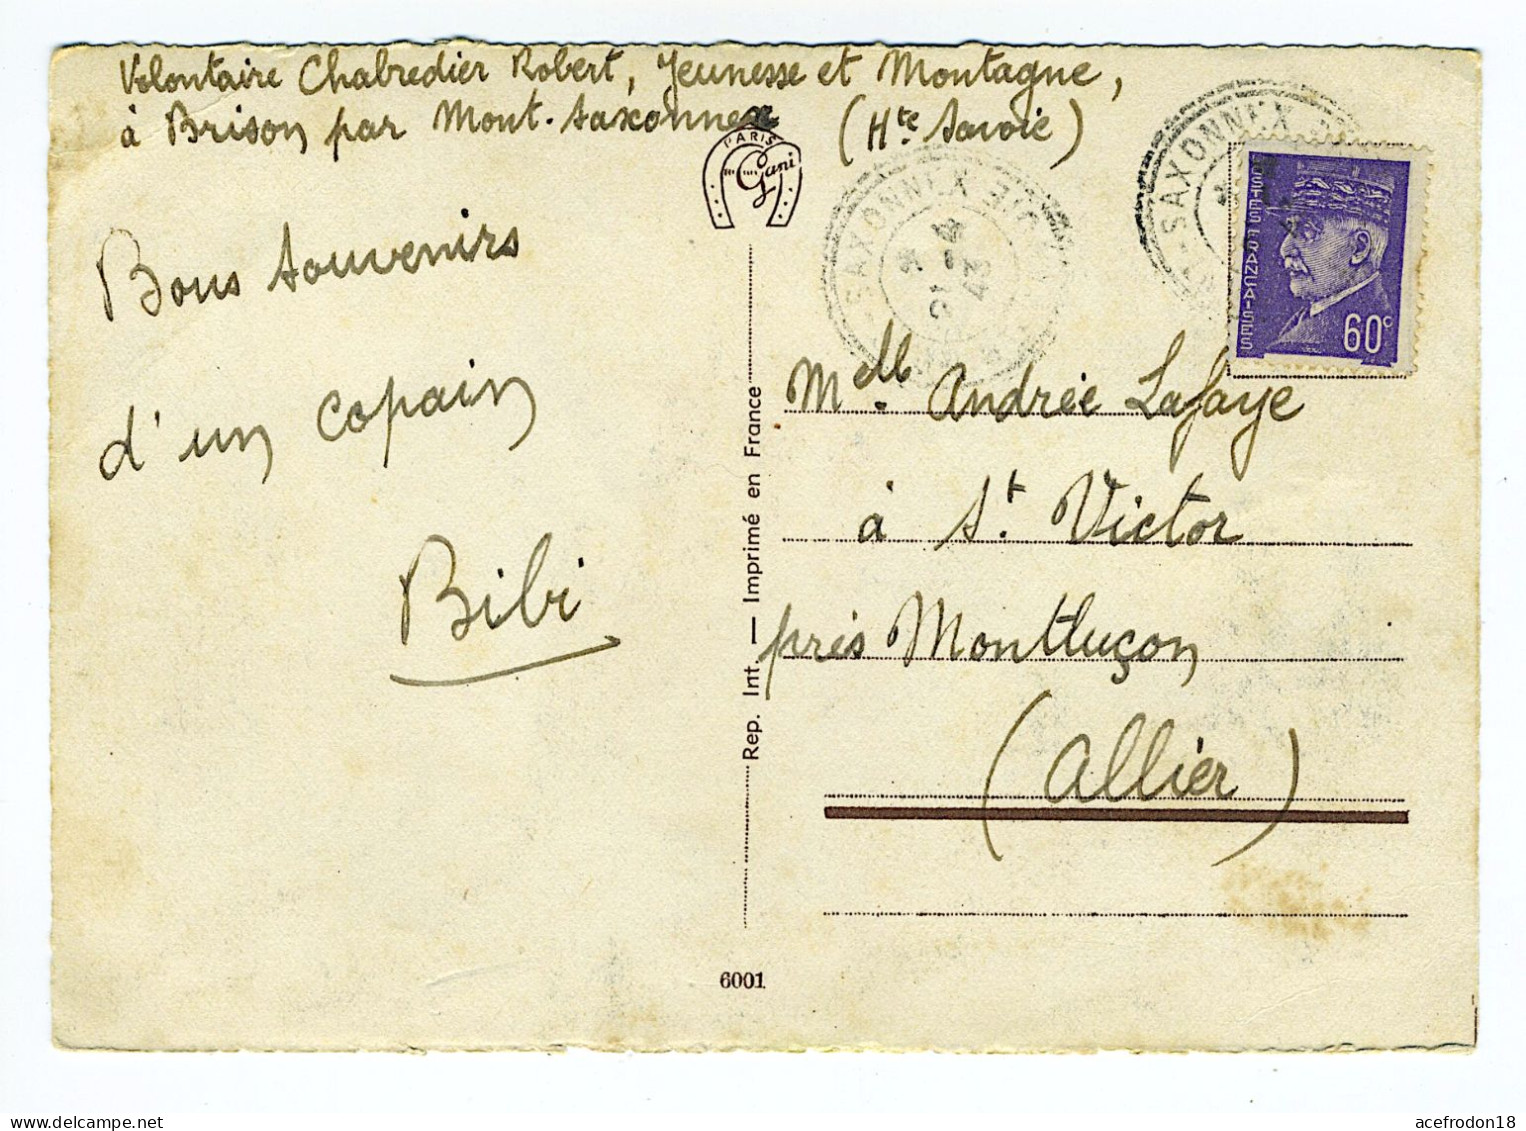 Volontaire Chabredier Robert, Jeunesse et Montagne,
à Brison par Mont-Saxonnex (Hte Savoie)
PARIS
Gani
SAXONNEX
SAXONNEX
21 -4
43
POSTES FRANÇAISES
60c
Bons souvenirs
d'un copain
Bibi
Melle. Andrée Lafaye
à St. Victor
près Montluçon
(Allier)
Rep. Int. — Imprimé en France
6001
acefrodon18